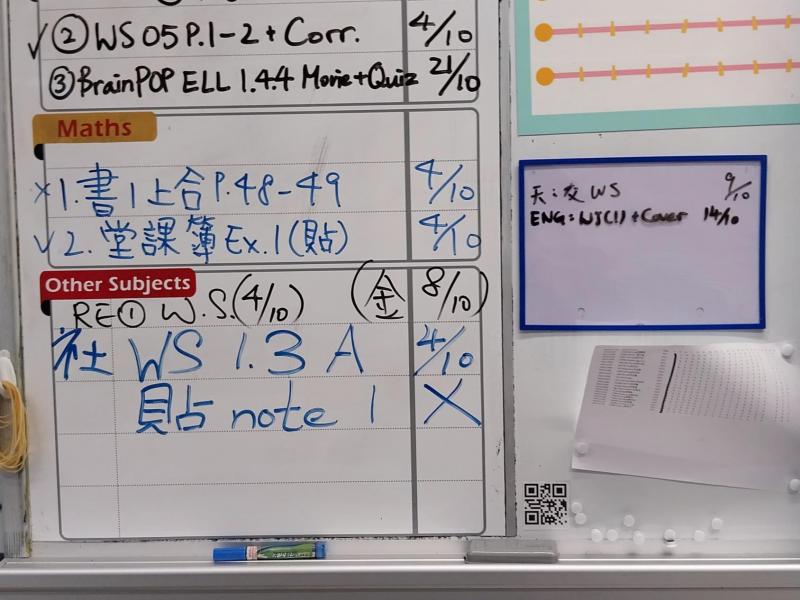 ✓ ② WS 05 P.1-2 + Corr. 4/10
③ BrainPOP ELL 1.4.4 Movie+Quiz 21/10
Maths
× 1. 書1上合P.48-49 4/10
✓ 2. 堂課簿Ex.1(貼) 4/10
Other Subjects
RE① W.S.(4/10) (金 8/10)
社 WS 1.3 A 4/10
貼 note 1 X
天:交 WS 9/10
ENG: WS(1) + Cover 14/10